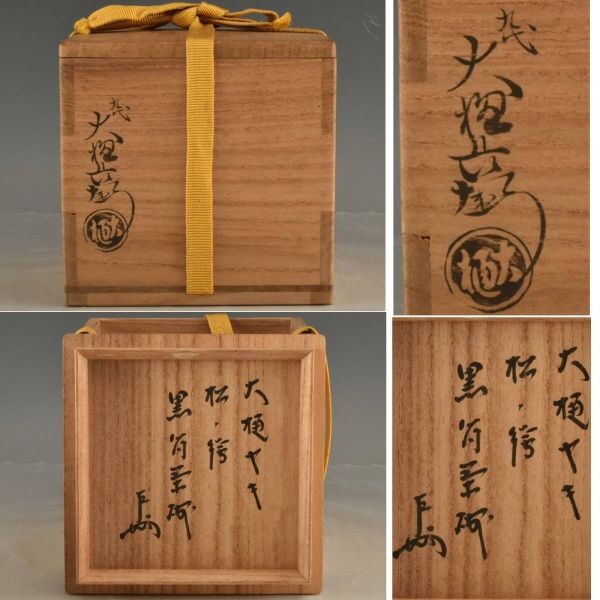 九代
大樋長左衛門
大樋
九代
大樋長左衛門
大樋
大樋ヤキ
松ノ絵
黒筒茶碗
大樋ヤキ
松ノ絵
黒筒茶碗